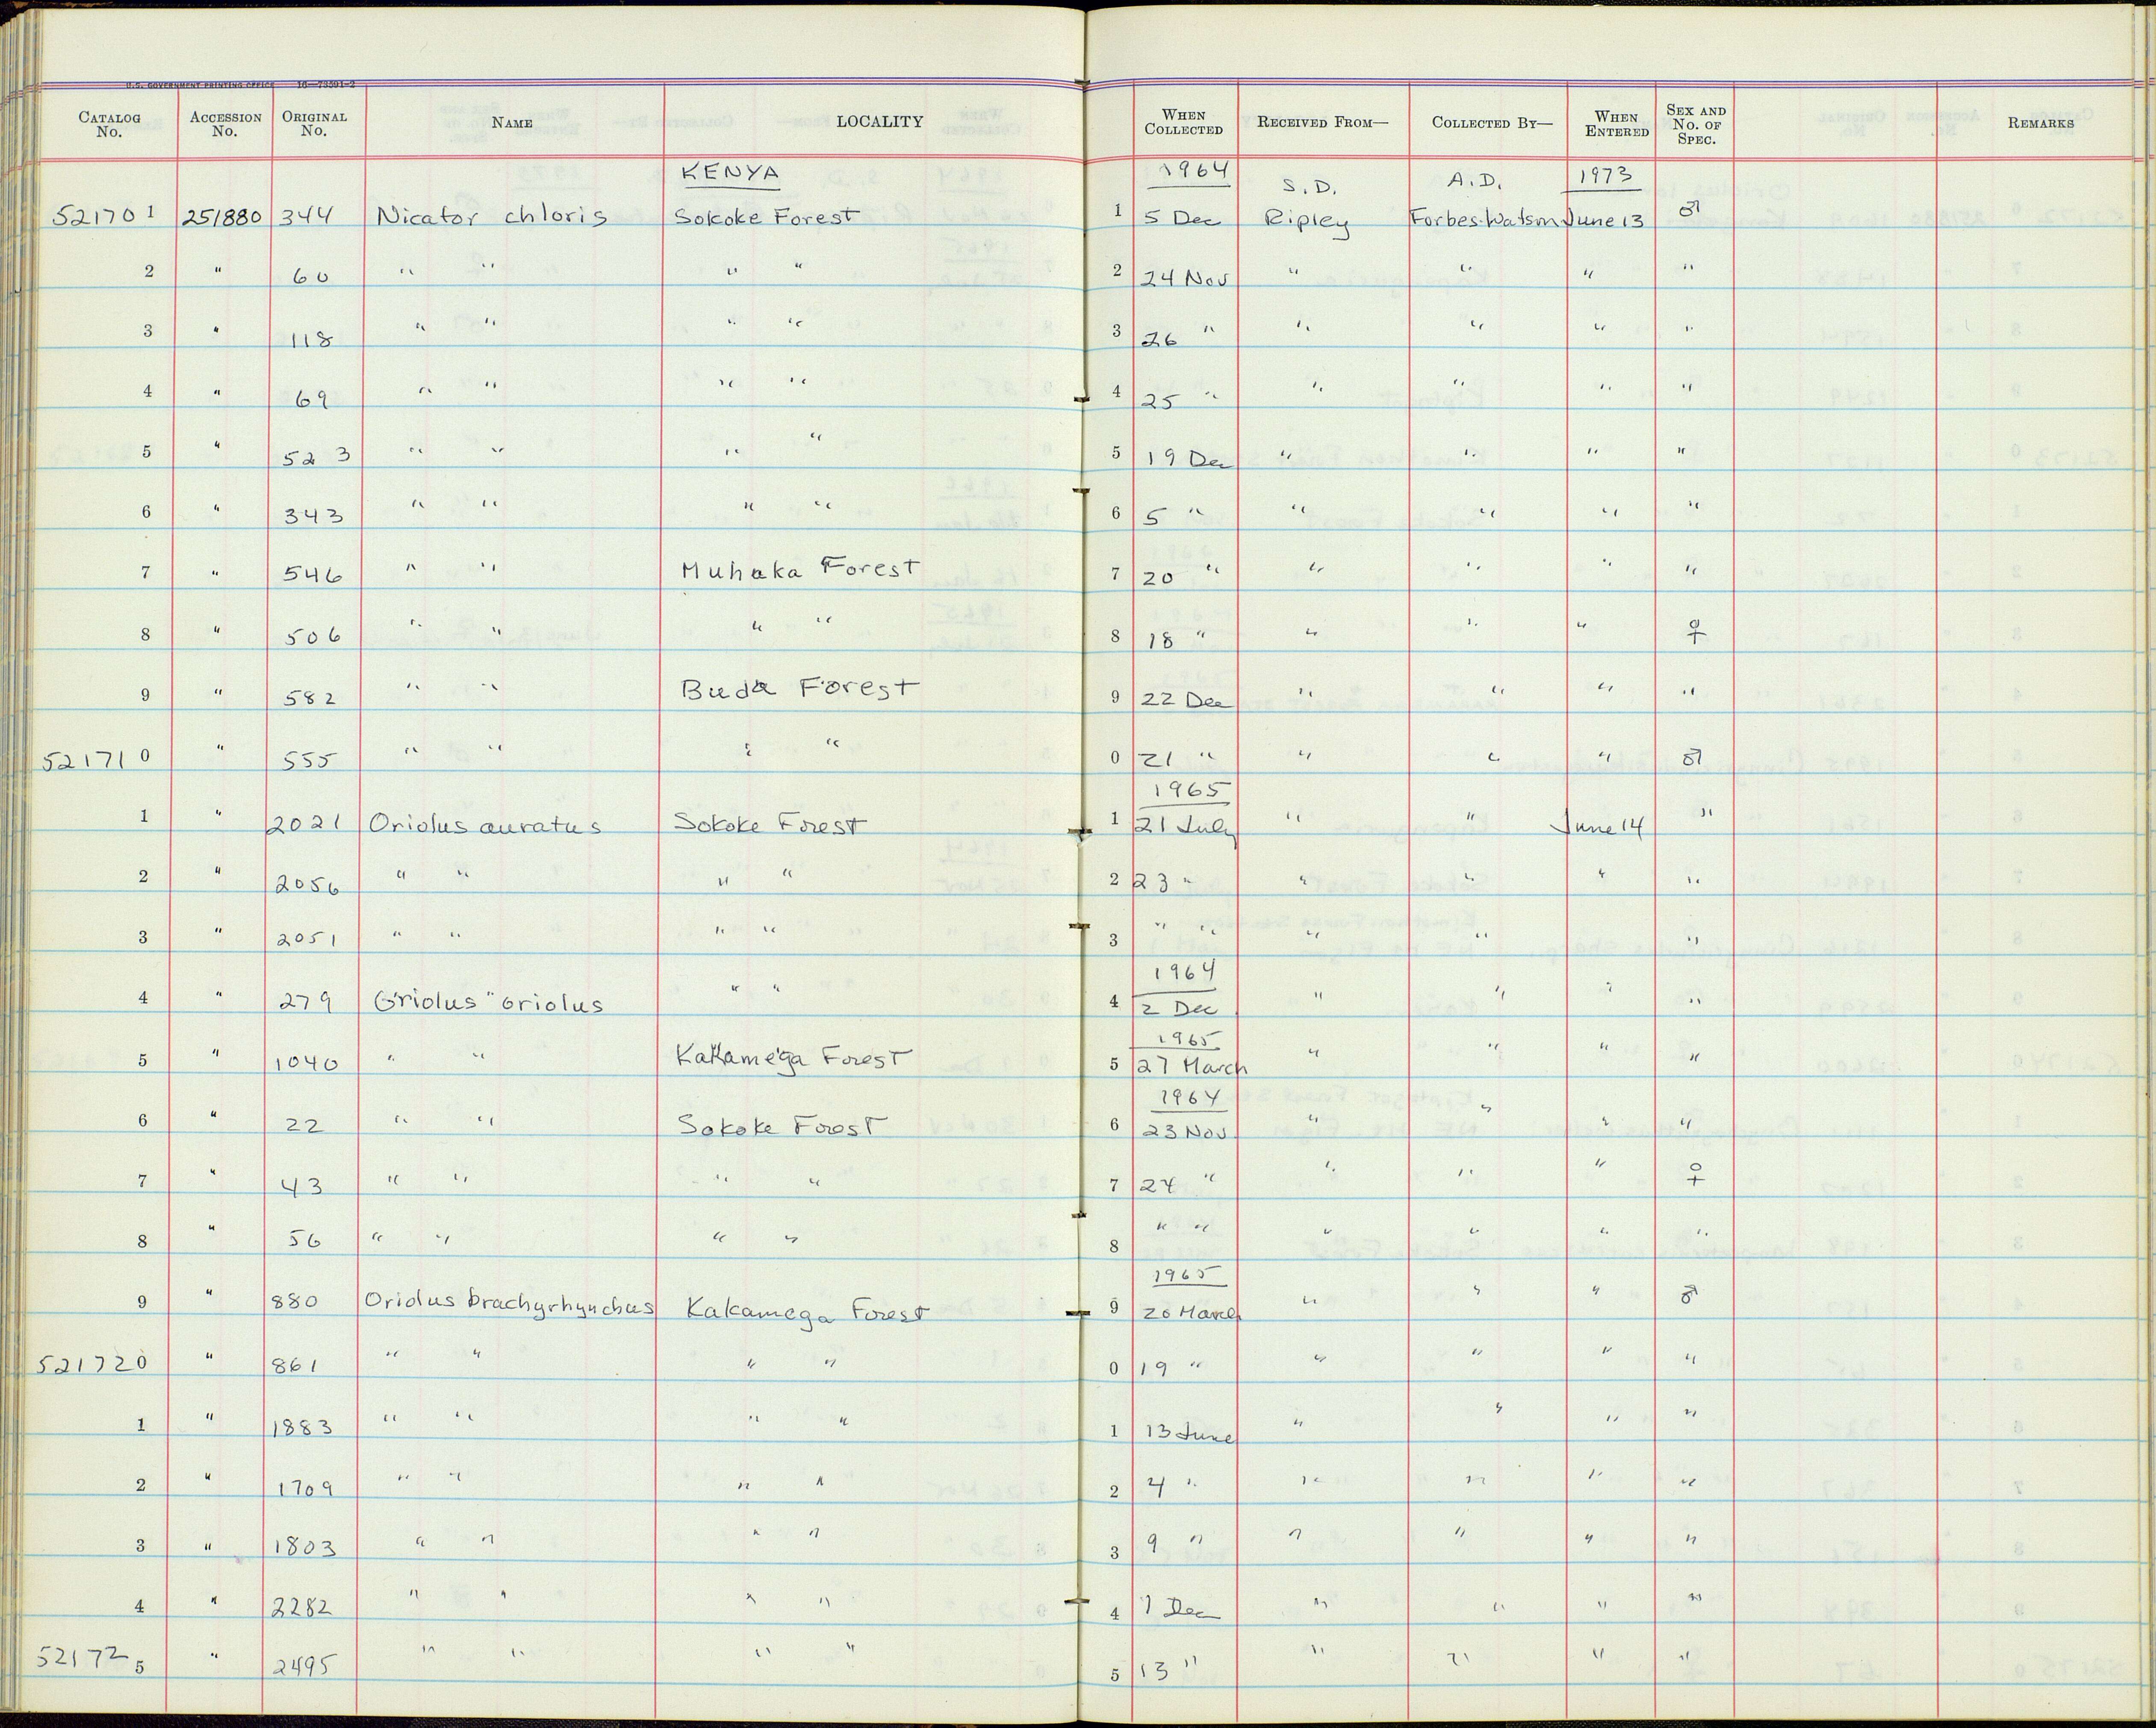 U.S. GOVERNMENT PRINTING OFFICE 16—73591-2
CATALOG No. ACCESSION No. ORIGINAL No. NAME LOCALITY WHEN COLLECTED RECEIVED FROM— COLLECTED BY— WHEN ENTERED SEX AND No. OF SPEC. REMARKS
KENYA 1964 S.D. A.D. 1973
521701 251880 344 Nicator chloris Sokoke Forest 1 5 Dec Ripley Forbes-Watson June 13 ♂
2 " 60 " " " " 2 24 Nov " " " "
3 " 118 " " " " 3 26 " " " " "
4 " 69 " " " " 4 25 " " " " "
5 " 523 " " " " 5 19 Dec " " " "
6 " 343 " " " " 6 5 " " " " "
7 " 546 " " Muhaka Forest 7 20 " " " " "
8 " 506 " " " " 8 18 " " " " ♀
9 " 582 " " Buda Forest 9 22 Dec " " " "
521710 " 555 " " " " 0 21 " " " " ♂
1965
1 " 2021 Oriolus auratus Sokoke Forest 1 21 July " " June 14 "
2 " 2056 " " " " 2 23 " " " " "
3 " 2051 " " " " 3 " " " " "
1964
4 " 279 Oriolus oriolus " " 4 2 Dec " " " "
1965
5 " 1040 " " Kakamega Forest 5 27 March " " " "
1964
6 " 22 " " Sokoke Forest 6 23 Nov " " " "
7 " 43 " " " " 7 24 " " " " ♀
8 " 56 " " " " 8 " " " " " "
1965
9 " 880 Oriolus brachyrhynchus Kakamega Forest 9 20 March " " " ♂
521720 " 861 " " " " 0 19 " " " " "
1 " 1883 " " " " 1 13 June " " " "
2 " 1709 " " " " 2 4 " " " " "
3 " 1803 " " " " 3 9 " " " " "
4 " 2282 " " " " 4 1 Dec " " " "
521725 " 2495 " " " " 5 13 " " " " "